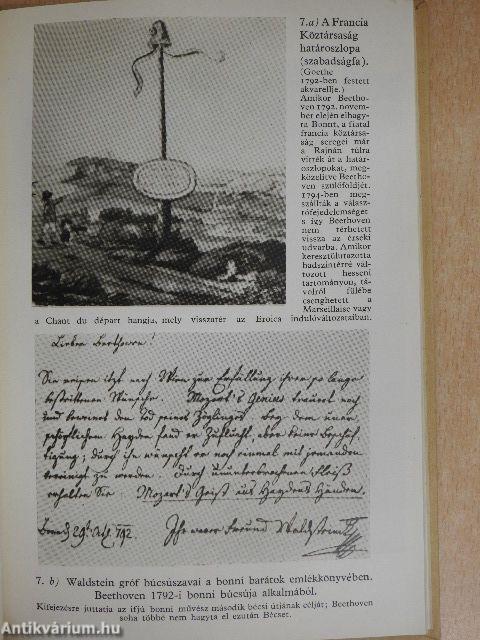 7. a) A Francia
Köztársaság
határoszlopa
(szabadságfa).
(Goethe
1792-ben festett
akvarellje.)
Amikor Beetho-
ven 1792. novem-
ber elején elhagy-
ta Bonnt, a fiatal
francia köztársa-
ság seregei már
a Rajnán túlra
vitték át a határ-
oszlopokat, meg-
közelítve Beetho-
ven szülőföldjét.
1794-ben meg-
szállták a válasz-
tófejedelemséget
s így Beethoven
nem térhetett
vissza az érseki
udvarba. Amikor
keresztülutazott a
hadszíntérré vál-
tozott hesseni
tartományon, tá-
volról fülébe
csenghetett a
Marseillaise vagy
a Chant du départ hangja, mely visszatér az Eroica indulóváltozataiban.
Lieber Beethowen!
Sie reisen itzt nach Wien zur Erfüllung ihrer so lange
bestrittenen Wünsche. Mozart's Genius trauert noch
und beweinet den Tod seines Zöglinges. Bey dem uner-
schöpflichem Haydn fand er Zuflucht, aber keine Beschäf-
tigung; durch ihn wünscht er noch einmal mit jemanden
vereinigt zu werden. Durch ununterbrochenen Fleiß
erhalten Sie: Mozart's Geist aus Haydens Händen.
Bonn d 29t. Oct. 792. Ihr warer Freund Waldstein
7. b) Waldstein gróf búcsúszavai a bonni barátok emlékkönyvében.
Beethoven 1792-i bonni búcsúja alkalmából.
Kifejezésre juttatja az ifjú bonni művész második bécsi útjának célját; Beethoven
soha többé nem hagyta el ezután Bécset.
Antikvárium.hu